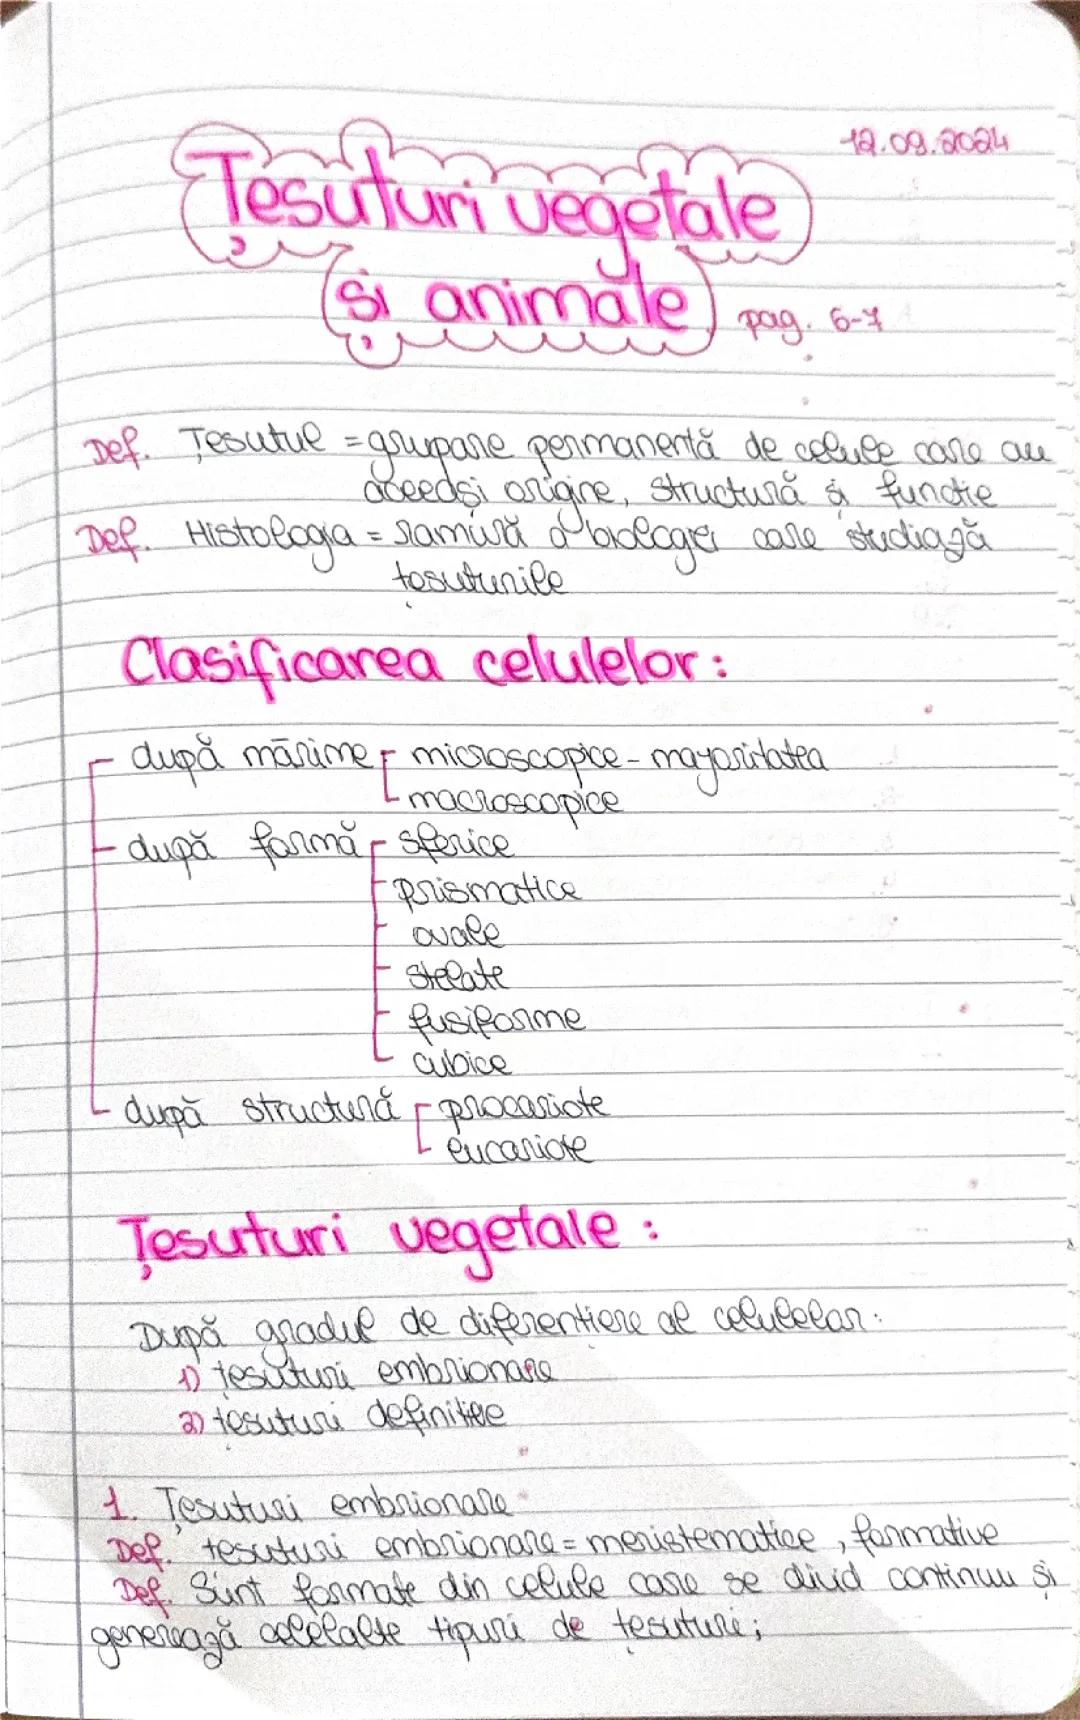 12.09.2024
Țesuturi vegetale
și animale
pag. 6-7
Def. Țesutul = grupare permanentă de celule care au
aceeași origine, structură și funcție
Def. Histologia = ramură a biologiei care studiază
țesuturile
Clasificarea celulelor:
după mărime microscopice - majoritatea
macroscopice
după formă sferice
prismatice
ovale
stelate
fusiforme
cubice
după structură procariote
eucariote
Țesuturi vegetale:
După gradul de diferențiere al celulelor:
1) țesuturi embrionare
2) țesuturi definitive
1. Țesuturi embrionare
Def. țesuturi embrionare = meristematice, formative
Def. Sunt formate din celule care se divid continuu și
generează celelalte tipuri de țesuturi;